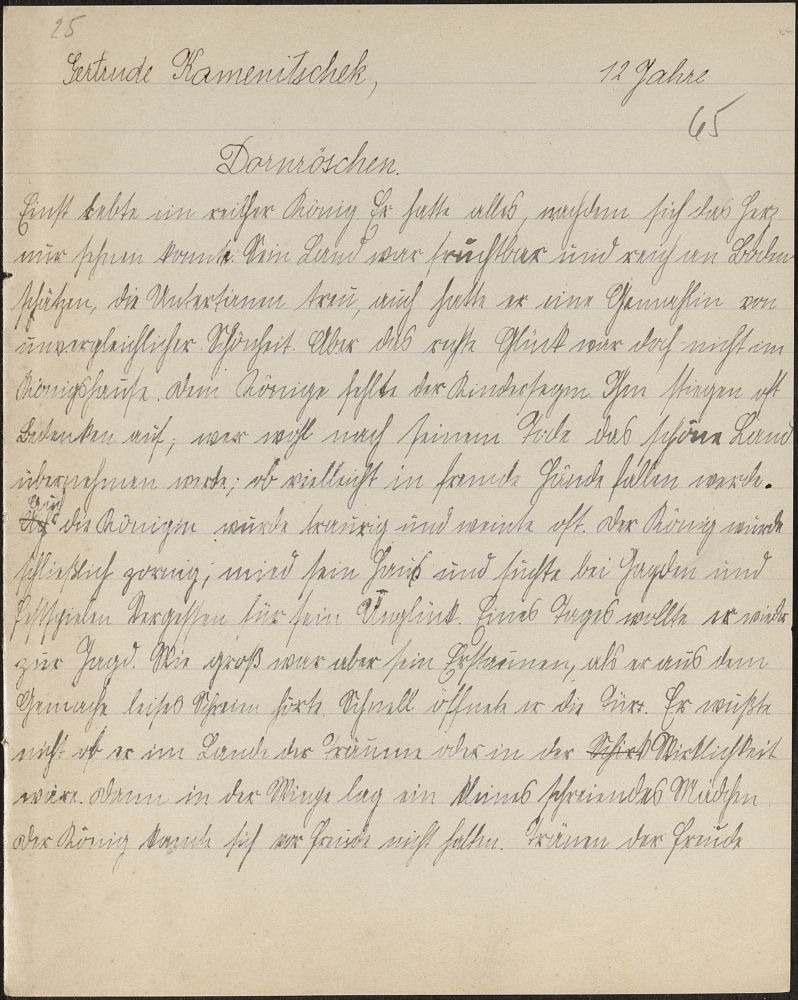 25
Gertrude Kamenitschek, 12 Jahre
65
Dornröschen.
Einst lebte ein reicher König Er hatte alles, nachdem sich das Herz
nur sehnen konnte Sein Land war fruchtbar und reich an Boden-
schätzen, die Untertanen treu, auch hatte er eine Gemahlin von
unvergleichlicher Schönheit. Aber das rechte Glück war doch nicht im
Königshause. Dem Könige fehlte der Kindersegen Ihm stiegen oft
Bedenken auf, wer wohl nach seinem Tode das schöne Land
übernehmen werde; ob vielleicht in fremde Hände fallen werde.
Auch die Königin wurde traurig und weinte oft. Der König wurde
schließlich zornig; mied sein Haus und suchte bei Jagden und
Festspielen Vergessen für sein Unglück. Eines Tages wollte er wieder
zur Jagd. Wie groß war aber sein Erstaunen, als er aus dem
Gemache leises Schreien hörte. Schnell öffnete er die Türe. Er wußte
nicht ob er im Lande der Träume oder in der Wirklichkeit
wäre. Denn in der Wiege lag ein kleines schreiendes Mädchen
Der König kannte sich vor Freude nicht halten. Tränen der Freude